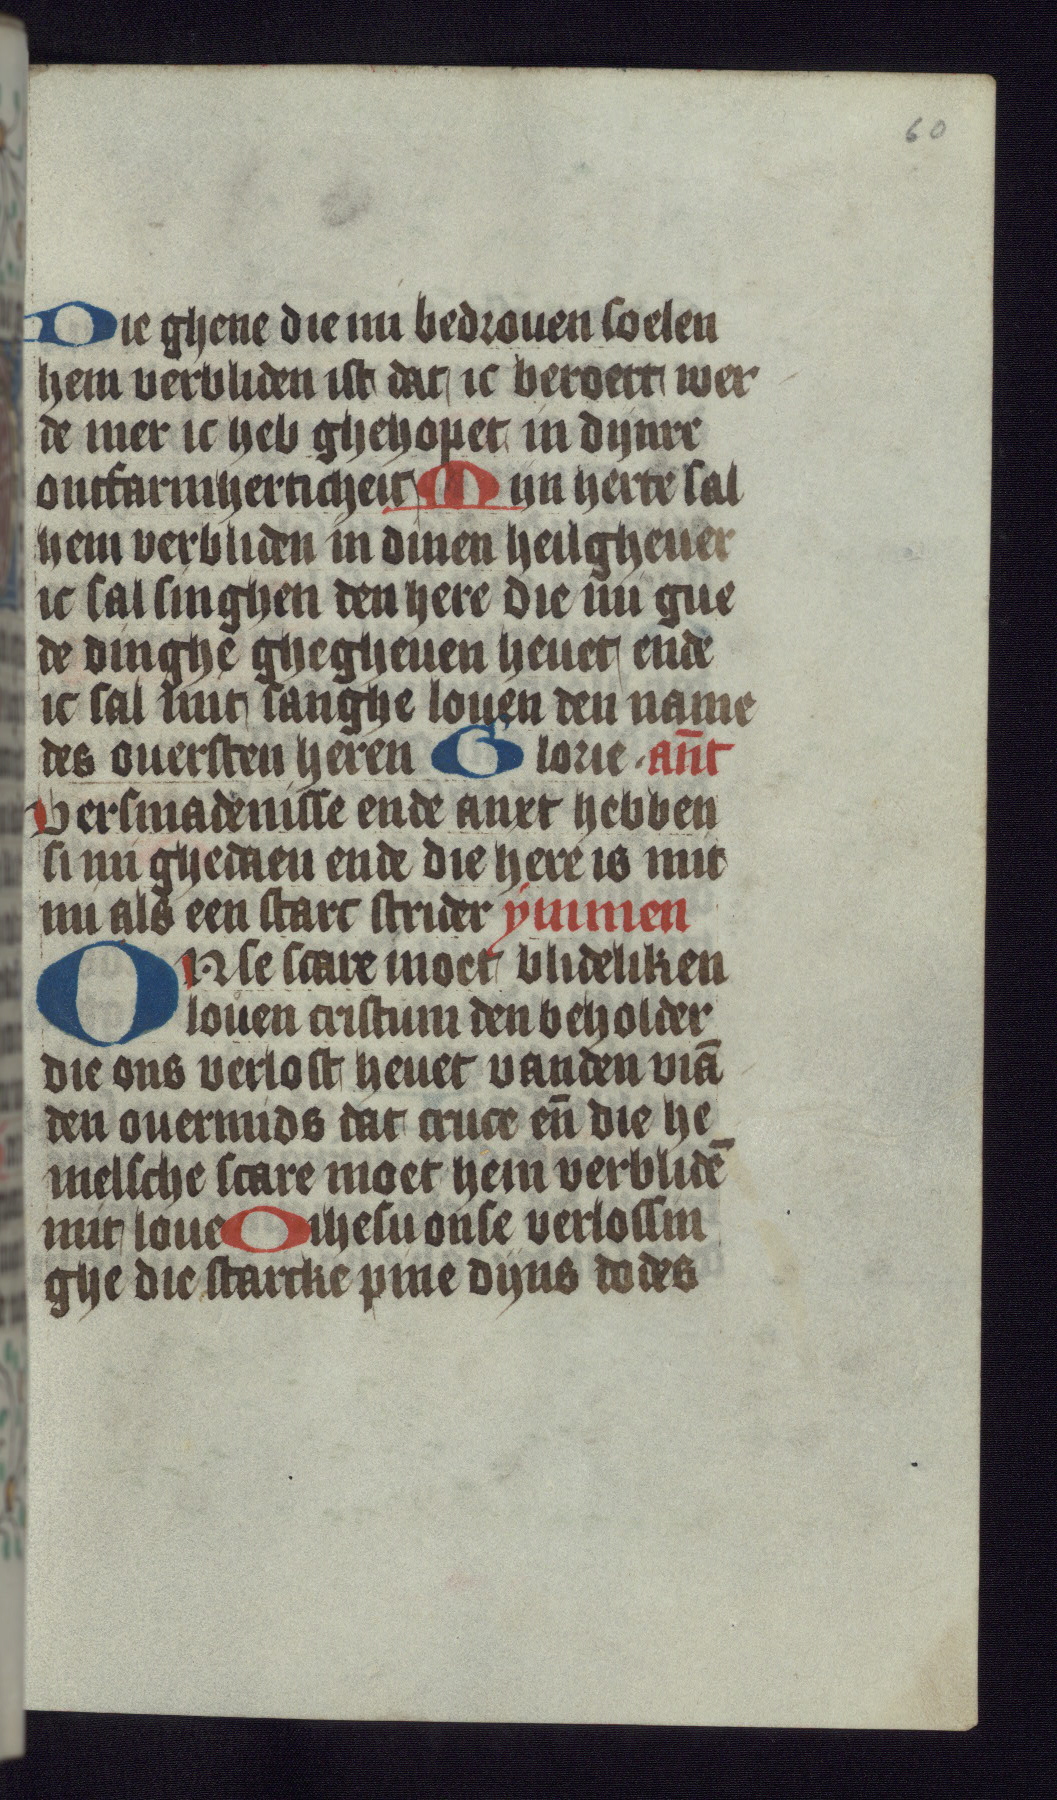 60
Die ghene die mi bedrouen soelen
hem verbliden ist dat ic beroert wer
de mer ic heb ghehopet in dijnre
ontfarmherticheit Mijn herte sal
hem verbliden in dinen heilghever
ic sal singhen den here die mi gue
de dinghe ghegheuen heuet ende
ic sal mit sanghe louen den name
des ouersten heren Glorie ant̄
Versmadenisse ende anxt hebben
si mi ghedaen ende die here is mit
mi als een starc strider ymmen
Onse scare moet blideliken
louen cristum den beholder
die ons verlost heuet vanden viā
den ouermids dat cruce en̄ die he
melsche scare moet hem verblidē
mit loue O ihesu onse verlossin
ghe die starcke pine dijns dodes